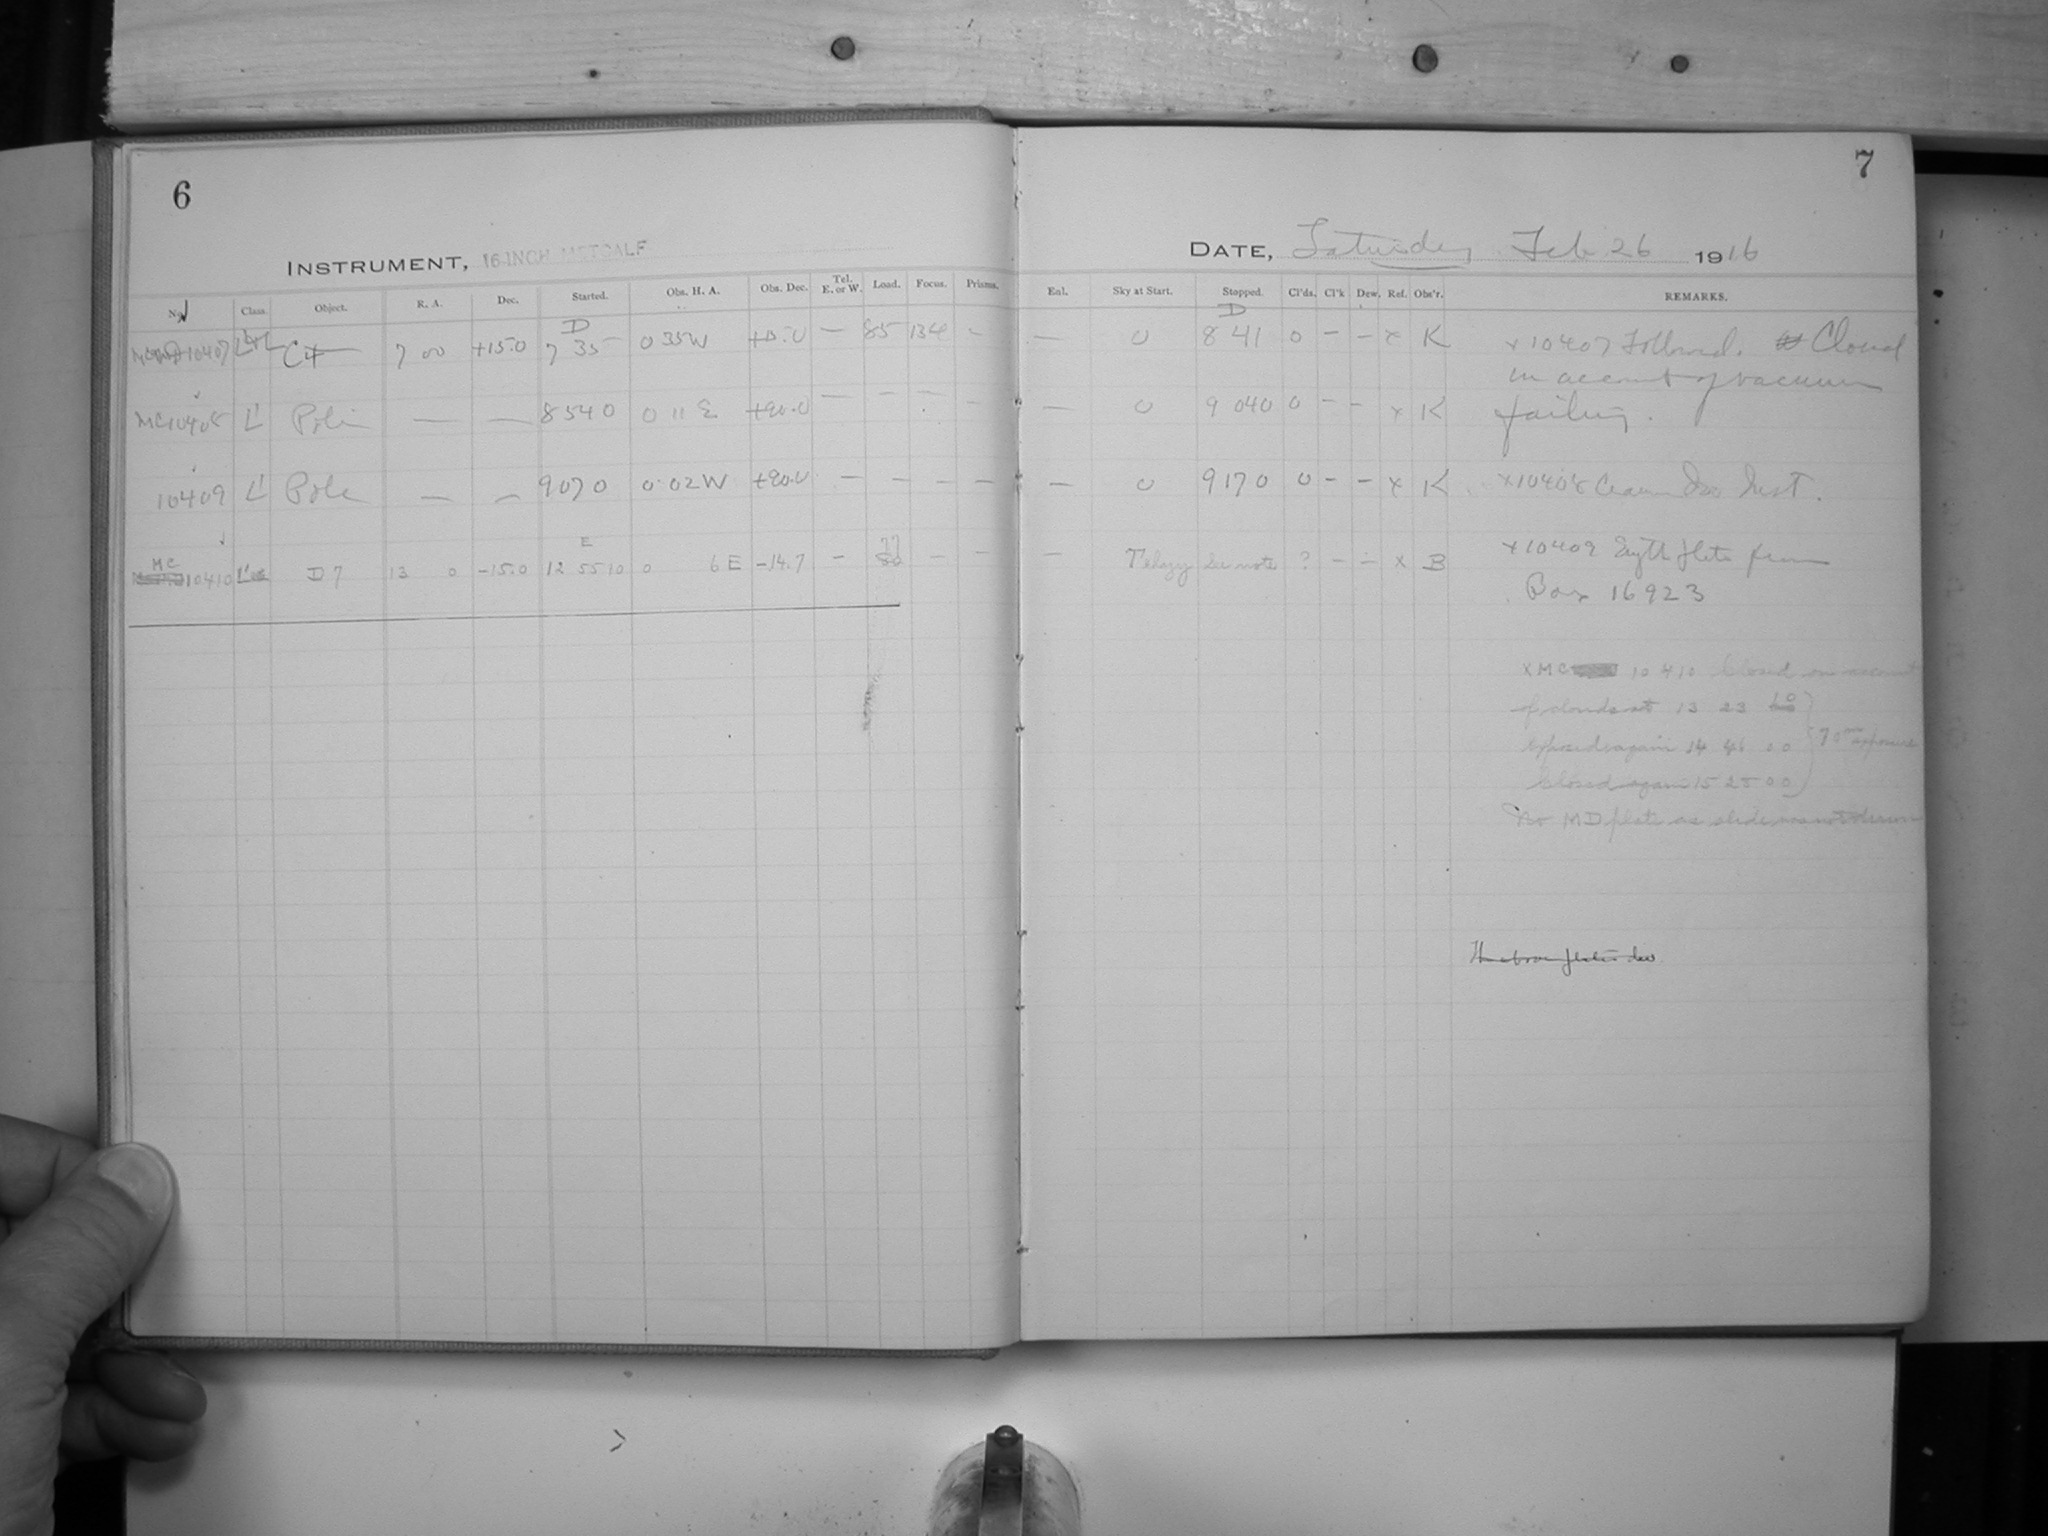 6
7
INSTRUMENT, 16-INCH METCALF
DATE, Saturday Feb 26 1916
No. Class. Object. R. A. Dec. Started. Obs. H. A. Obs. Dec. Tel. E. or W. Load. Focus. Prisms. Enl. Sky at Start. Stopped. Cl'ds. Cl'k Dew. Ref. Obs'r. REMARKS.
D D
10407 C4 7 00 +15.0 7 35 0 35W — 85 134 – — 0 8 41 0 – – x K x 10407 Followed. Closed
on account of vacuum
MC10408 L' Pole — — 8 54 0 0 11 E +90.0 — – – — — 0 9 04 0 0 – – x K failing.
10409 L' Pole — – 9 07 0 0.02W +90.0 — – – – — 0 9 17 0 0 – – x K x10408 Inst.
E
MC 10410 D7 13 0 -15.0 12 55 10 0 6 E -14.7 – – – — See note ? – – x B x 10409 plate from
Box 16923
x MC 10 410 Closed on account
of clouds at 13 23
Exposed again 14 70 m exposure
Closed again 15 25 00
No MD plate as slide was not drawn